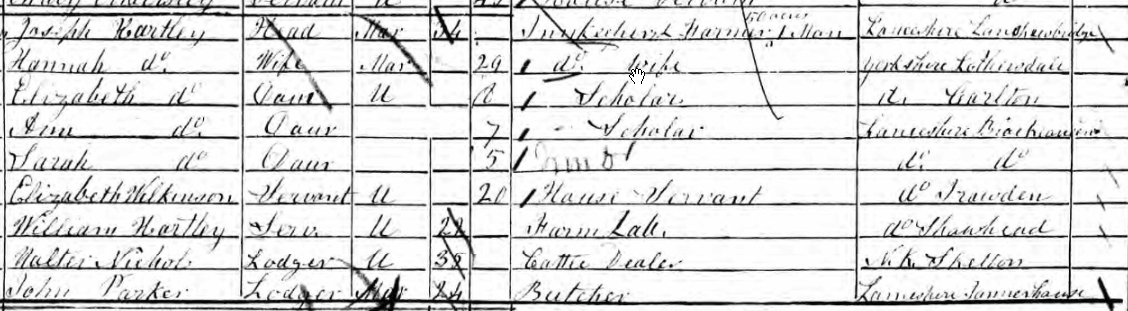 Servant U
Joseph Hartley Head Mar 34 Innkeeper & Farmer 1 Man Lancashire
50 acres
Hannah do. Wife Mar 29 do. Wife Yorkshire Lothersdale
Elizabeth do Daur U Scholar do. Carlton
Ann do. Daur 7 Scholar Lancashire
Sarah do Daur 5 do do
Elizabeth Wilkinson Servant U 20 House Servant do Trawden
William Hartley Serv. U 22 Farm Lab. do Shawhead
Walter Nichol Lodger U 32 Cattle Dealer N.K. Skelton
John Parker Lodger Mar 24 Butcher Lancashire